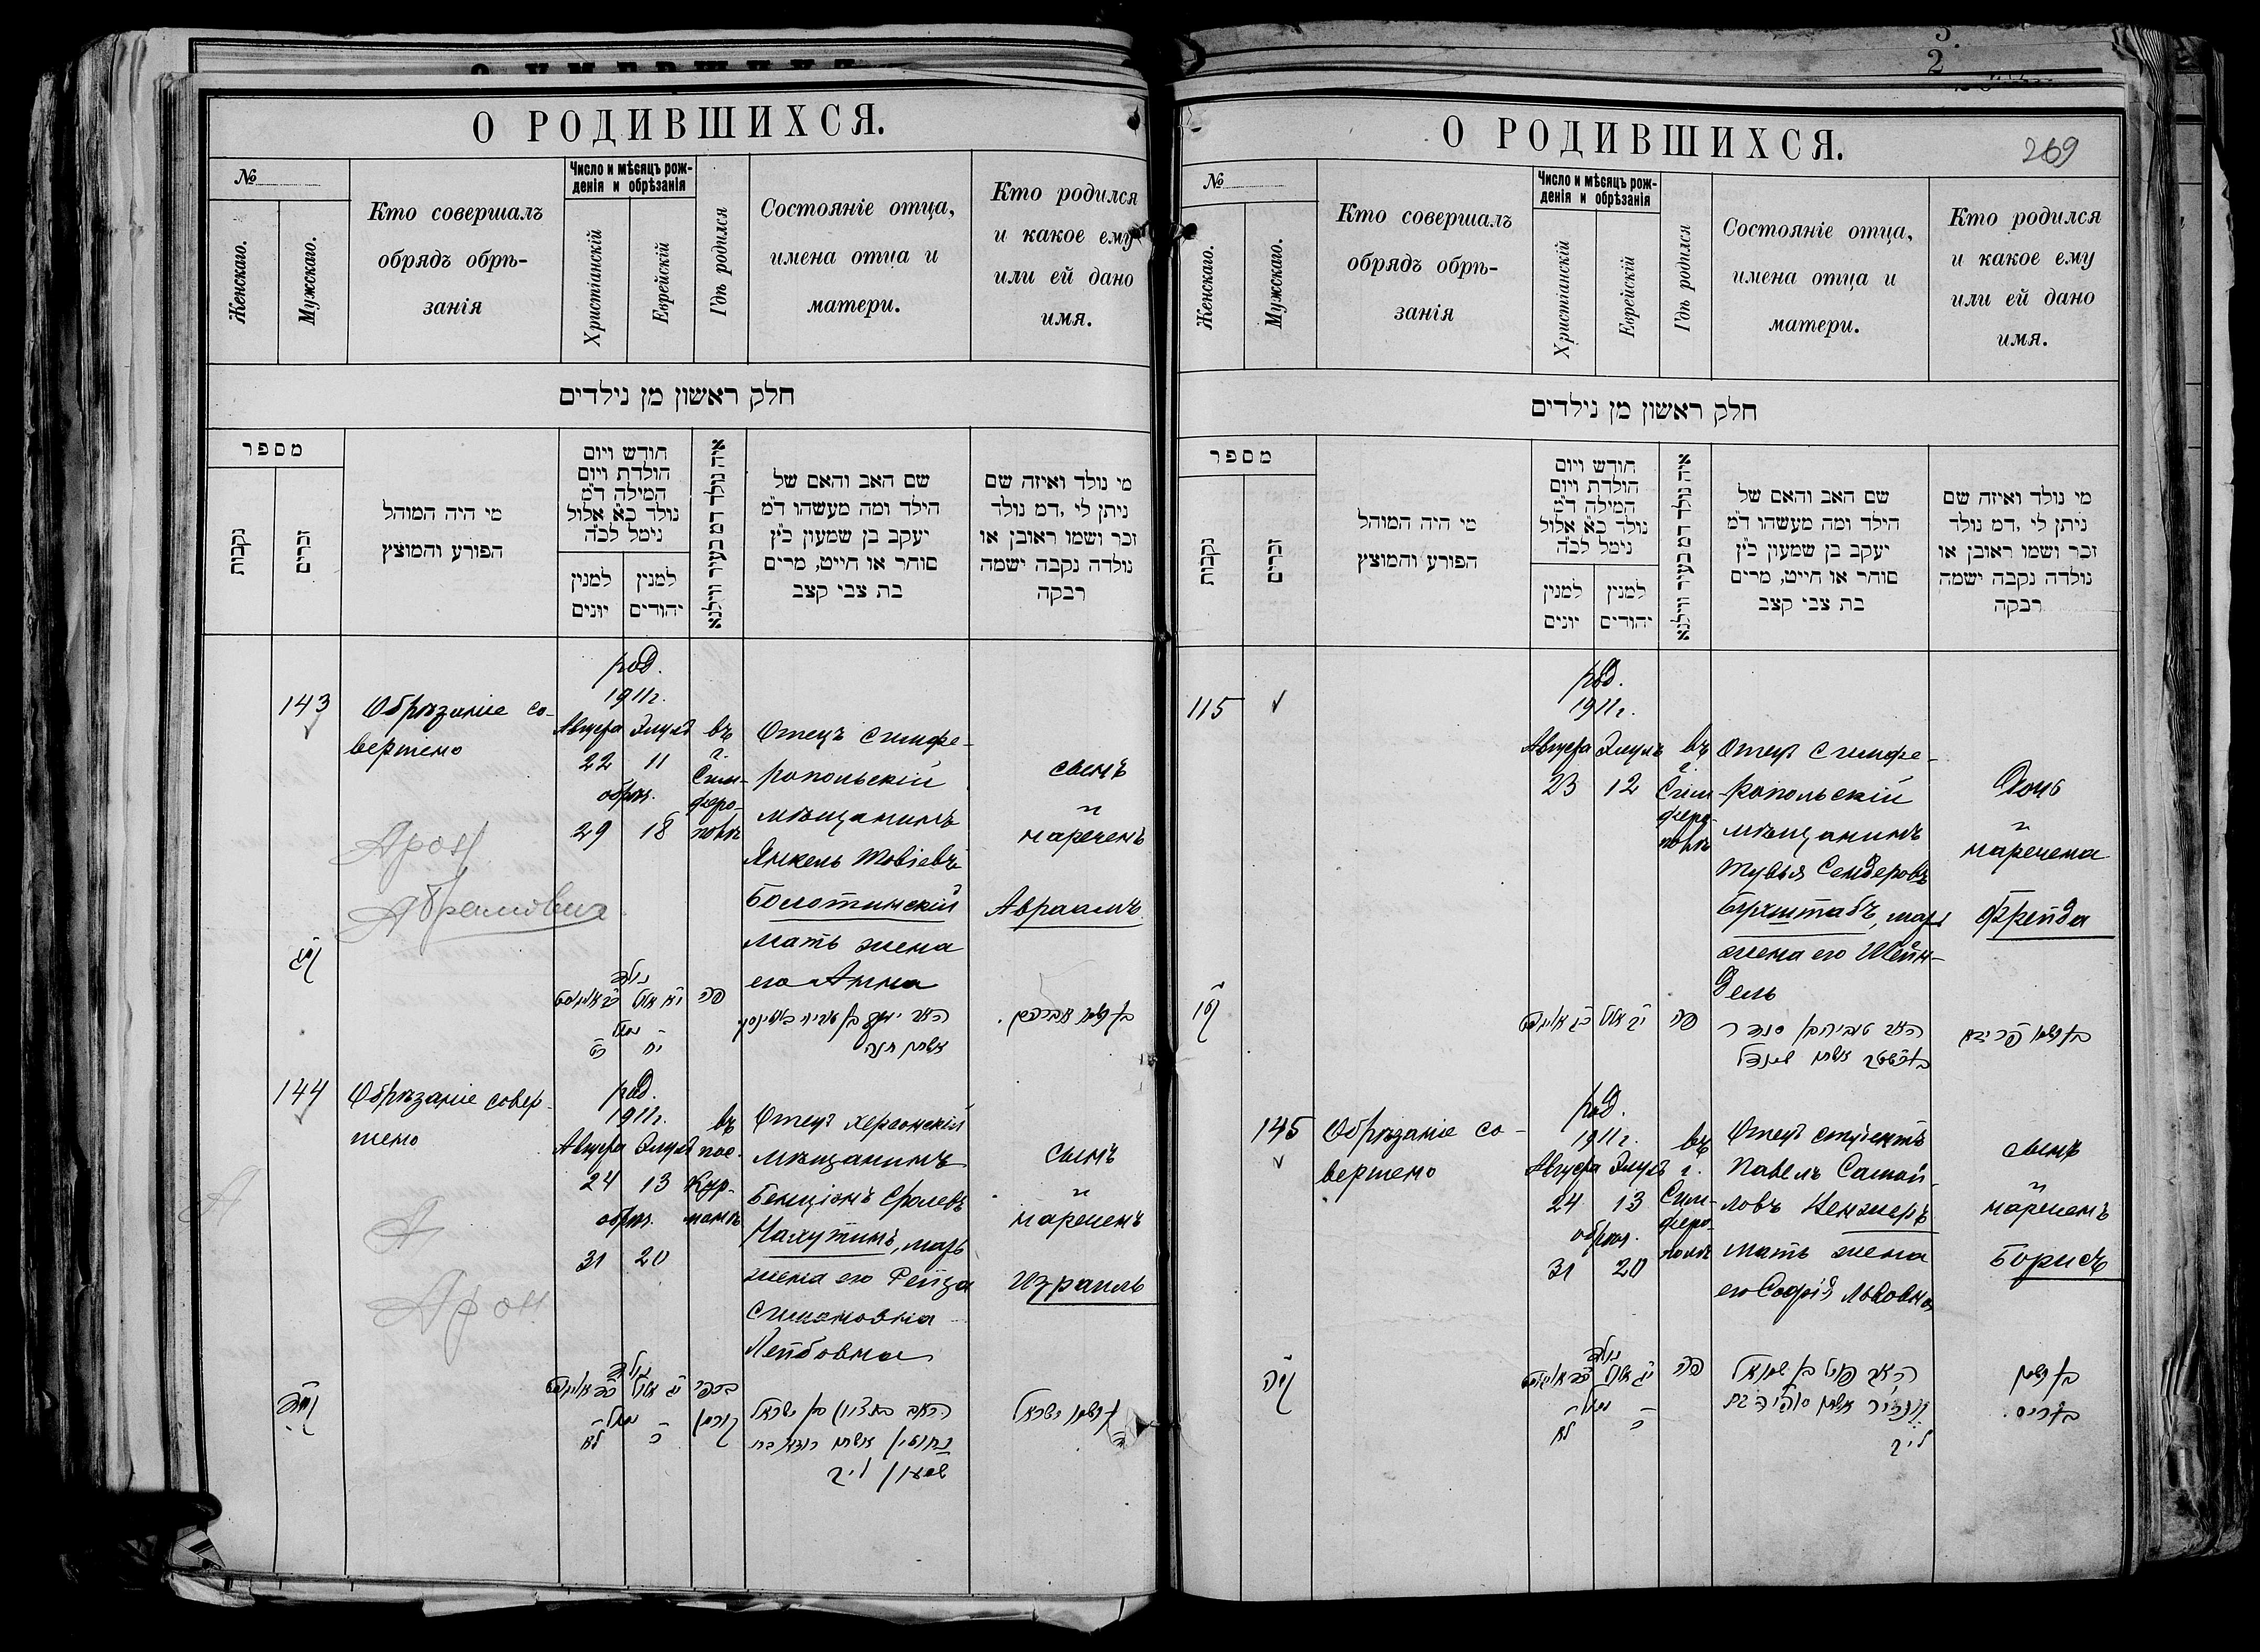 О РОДИВШИХСЯ.
№
Женскаго.
Мужскаго.
Кто совершалъ
обрядъ обрѣ-
занія
Число и мѣсяцъ рож-
денія и обрѣзанія
Христіанскій
Еврейскій
Гдѣ родился
Состояніе отца,
имена отца и
матери.
Кто родился
и какое ему
или ей дано
имя.
חלק ראשון מן נילדים
מספר
נקבות
זכרים
מי היה המוהל
הפורע והמוצץ
חודש ויום
הולדת ויום
המילה ד"מ
נולד כ"א אלול
נימל לכ"ה
למנין
יונים
למנין
יהודים
איה נולד דמ בעיר ווילנא
שם האב והאם של
הילד ומה מעשהו ד"מ
יעקב בן שמעון כ"ץ
סוחר או חייט, מרים
בת צבי קצב
מי נולד ואיזה שם
ניתן לי ,דמ נולד
זכר ושמו ראובן או
נולדה נקבה ישמה
רבקה
143
Обрѣзаніе со-
вершено
Арон
Абрамович
род.
1911г.
Августа Элулъ
22 11
обрѣз.
29 18
въ
г.
Сим-
феро-
полѣ
Отецъ симфе-
ропольскій
мѣщанинъ
Янкель Товіевъ
Болотинскій
мать жена
его Анна
сынъ
и
нареченъ
Авраамъ
נולד
י"א אלול
פה
אשתו חנה
בן ושמו אברהם
144
Обрѣзаніе совер-
шено
Арон
род.
1911г.
Августа Элулъ
24 13
обрѣз.
31 20
въ
пос.
Кур-
манѣ
Отецъ херсонскій
мѣщанинъ
Бенціонъ Сролевъ
Нахутинъ, мать
жена его Рейза
Симоновна
Лейбовна
сынъ
и
нареченъ
Израиль
נולד
י"ג אלול
קורמן
האב בן ציון בן ישראל
בן ושמו ישראל
О РОДИВШИХСЯ.
269
№
Женскаго.
Мужскаго.
Кто совершалъ
обрядъ обрѣ-
занія
Число и мѣсяцъ рож-
денія и обрѣзанія
Христіанскій
Еврейскій
Гдѣ родился
Состояніе отца,
имена отца и
матери.
Кто родился
и какое ему
или ей дано
имя.
חלק ראשון מן נילדים
מספר
נקבות
זכרים
מי היה המוהל
הפורע והמוצץ
חודש ויום
הולדת ויום
המילה ד"מ
נולד כ"א אלול
נימל לכ"ה
למנין
יונים
למנין
יהודים
איה נולד דמ בעיר ווילנא
שם האב והאם של
הילד ומה מעשהו ד"מ
יעקב בן שמעון כ"ץ
סוחר או חייט, מרים
בת צבי קצב
מי נולד ואיזה שם
ניתן לי ,דמ נולד
זכר ושמו ראובן או
נולדה נקבה ישמה
רבקה
115
род.
1911г.
Августа Элулъ
23 12
въ
г.
Сим-
феро-
полѣ
Отецъ симфе-
ропольскій
мѣщанинъ
Тувья Сендеровъ
Бухштабъ, мать
жена его Шейн-
дель
Дочь
и
наречена
Фрейда
י"ב אלול
פה
145
Обрѣзаніе со-
вершено
род.
1911г.
Августа Элулъ
24 13
обрѣз.
31 20
въ
г.
Сим-
феро-
полѣ
Отецъ студентъ
Павелъ Самой-
ловъ Ценжеръ
мать жена
его Софія Львовна
сынъ
и
нареченъ
Борисъ
נולד
י"ג אלול
פה
בן ושמו
באריס